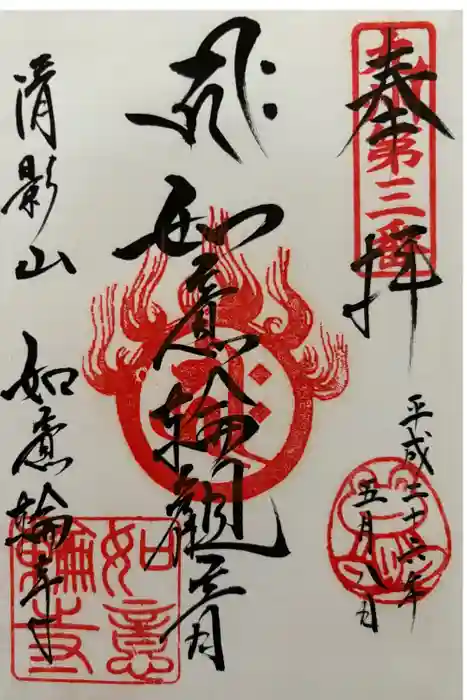 奉拝
第三番
平成二十六年
五月八日
如意輪観音
清影山
如意輪寺
如意
輪寺